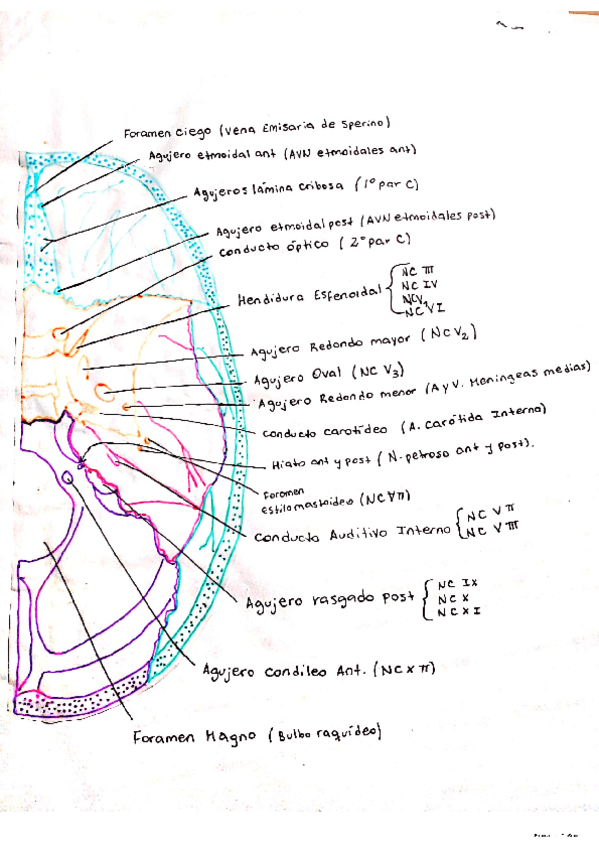 Foramen ciego (vena Emisaria de Sperino)
Agujero etmoidal ant (AVN etmoidales ant)
Agujeros lámina cribosa (1º par C)
Agujero etmoidal post (AVN etmoidales post)
Conducto óptico (2º par C)
Hendidura Esfenoidal { NC III
NC IV
NCV1
NC VI
Agujero Redondo mayor (NCV2)
Agujero Oval (NC V3)
Agujero Redondo menor (A y V. Meníngeas medias)
Conducto carotídeo (A. Carótida Interna)
Hiato ant y post (N. petroso ant y post).
Foramen
estilomastoideo (NC VII)
Conducto Auditivo Interno { NC VII
NC VIII
Agujero rasgado post { NC IX
NC X
NC XI
Agujero Condileo Ant. (NC XII)
Foramen Magno (Bulbo raquídeo)